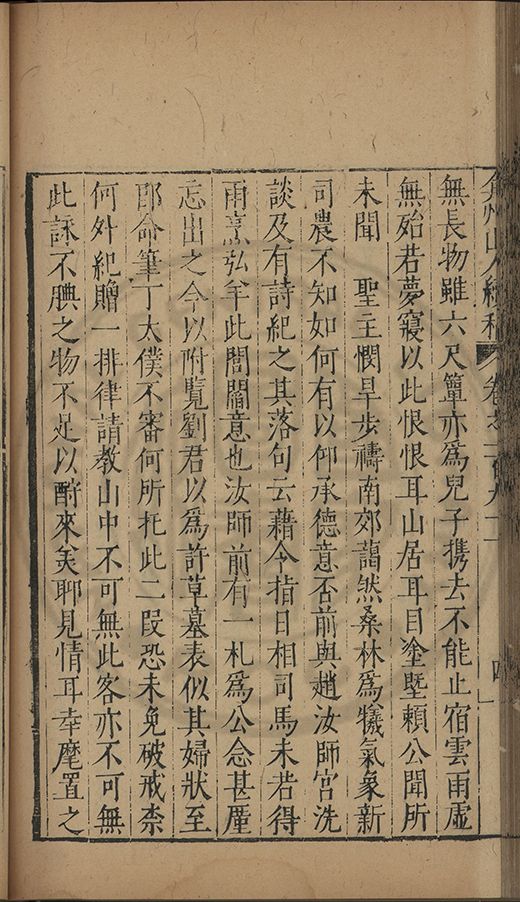 弇州山人續稿 卷之一百九十一 四
無長物雖六尺簟亦爲兒子携去不能止宿雲雨虛
無殆若夢寢以此恨恨耳山居耳目塗塈頼公聞所
未聞 聖主憫旱步禱南郊藹然桑林爲犧氣象新
司農不知如何有以仰承德意否前與趙汝師宫洗
談及有詩紀之其落句云藉令指日相司馬未若得
雨烹弘羊此誾闔意也汝師前有一札爲公念甚塵
忘出之今以附覧劉君以爲許草墓表似其婦狀至
即命筆丁太僕不審何所托此二叚恐未免破戒柰
何外紀贈一排律請教山中不可無此客亦不可無
此詠不腆之物不足以酧來美聊見情耳幸麾置之